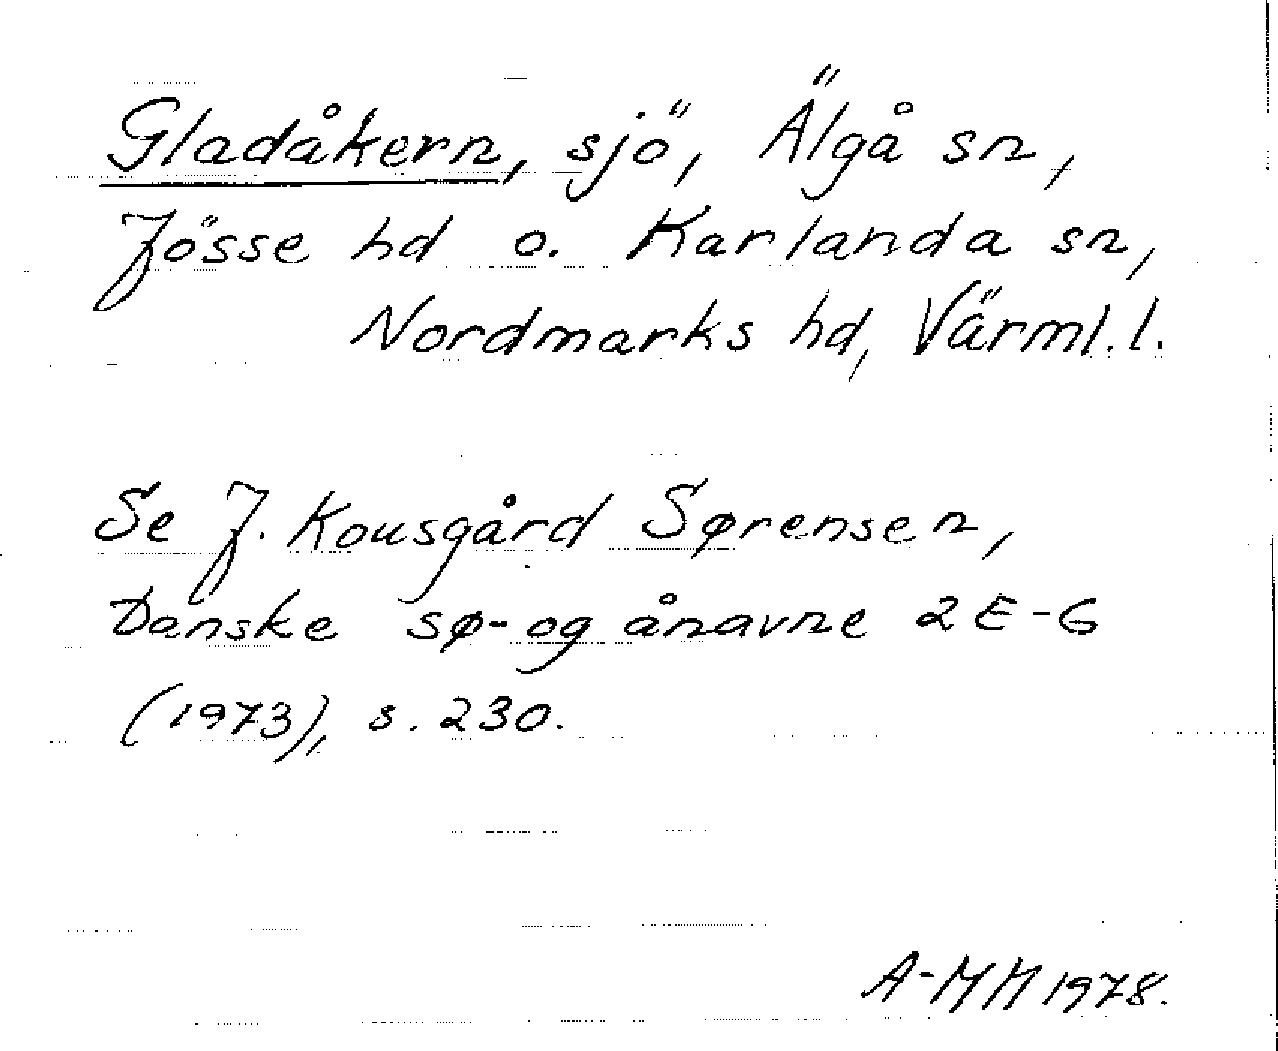 Gladåkern, sjö, Älgå sn,
Jösse hd o. Karlanda sn,
Nordmarks hd, Värml. l.
Se J. Kousgård Sørensen,
Danske sø- og ånavne 2 E-G
(1973), s. 230.
A-MH 1978.